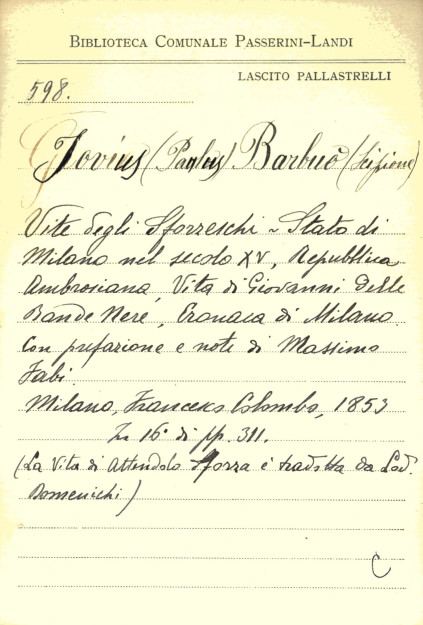 BIBLIOTECA COMUNALE PASSERINI-LANDI
LASCITO PALLASTRELLI
598.
Jovius (Paulus) Barbuò (Scipione)
Vite degli Sforzeschi ~ Stato di
Milano nel secolo XV, Repubblica
Ambrosiana, Vita di Giovanni delle
Bande Nere, Cronaca di Milano
con prefazione e note di Massimo
Fabi.
Milano, Francesco Colombo, 1853
In 16° di pp. 311.
(La Vita di Attendolo Sforza è tradotta da Lod.
Domenichi)
C